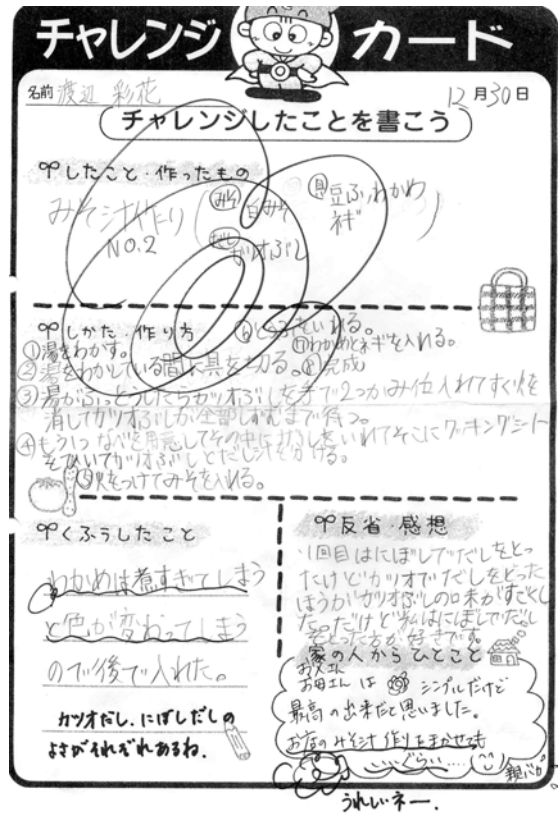 チャレンジカード
名前 渡辺 彩花
12月30日
チャレンジしたことを書こう
したこと・作ったもの
みそ汁作り
NO.2
みそ 白みそ
だし カツオぶし
具 豆ふ、わかめ
ネギ
しかた・作り方
①湯をわかす。
②湯をわかしている間に具を切る。
③湯がふっとうしたらカツオぶしを手で2つかみ位入れてすぐ火を
消してカツオぶしが全部しずむまで待つ。
④もう1つなべを用意してその中にざるをいれてそこにクッキングシート
をひいてカツオぶしとだし汁を分ける。
⑤火をつけてみそを入れる。
⑥とうふをいれる。
⑦わかめとネギを入れる。
⑧完成
くふうしたこと
わかめは煮すぎてしまう
と色が変わってしまう
ので後で入れた。
カツオだし、にぼしだしの
よさがそれぞれあるね。
反省・感想
1回目はにぼしでだしをとっ
たけどカツオでだしをとった
ほうがカツオぶしの味がすごくし
た。だけど私はにぼしでだし
をとった方が好きです。
家の人からひとこと
お父さん
お母さんは シンプルだけど
最高の出来だと思いました。
お店のみそ汁作りをまかせても
いいぐらい…
親バカ
うれしいネー.